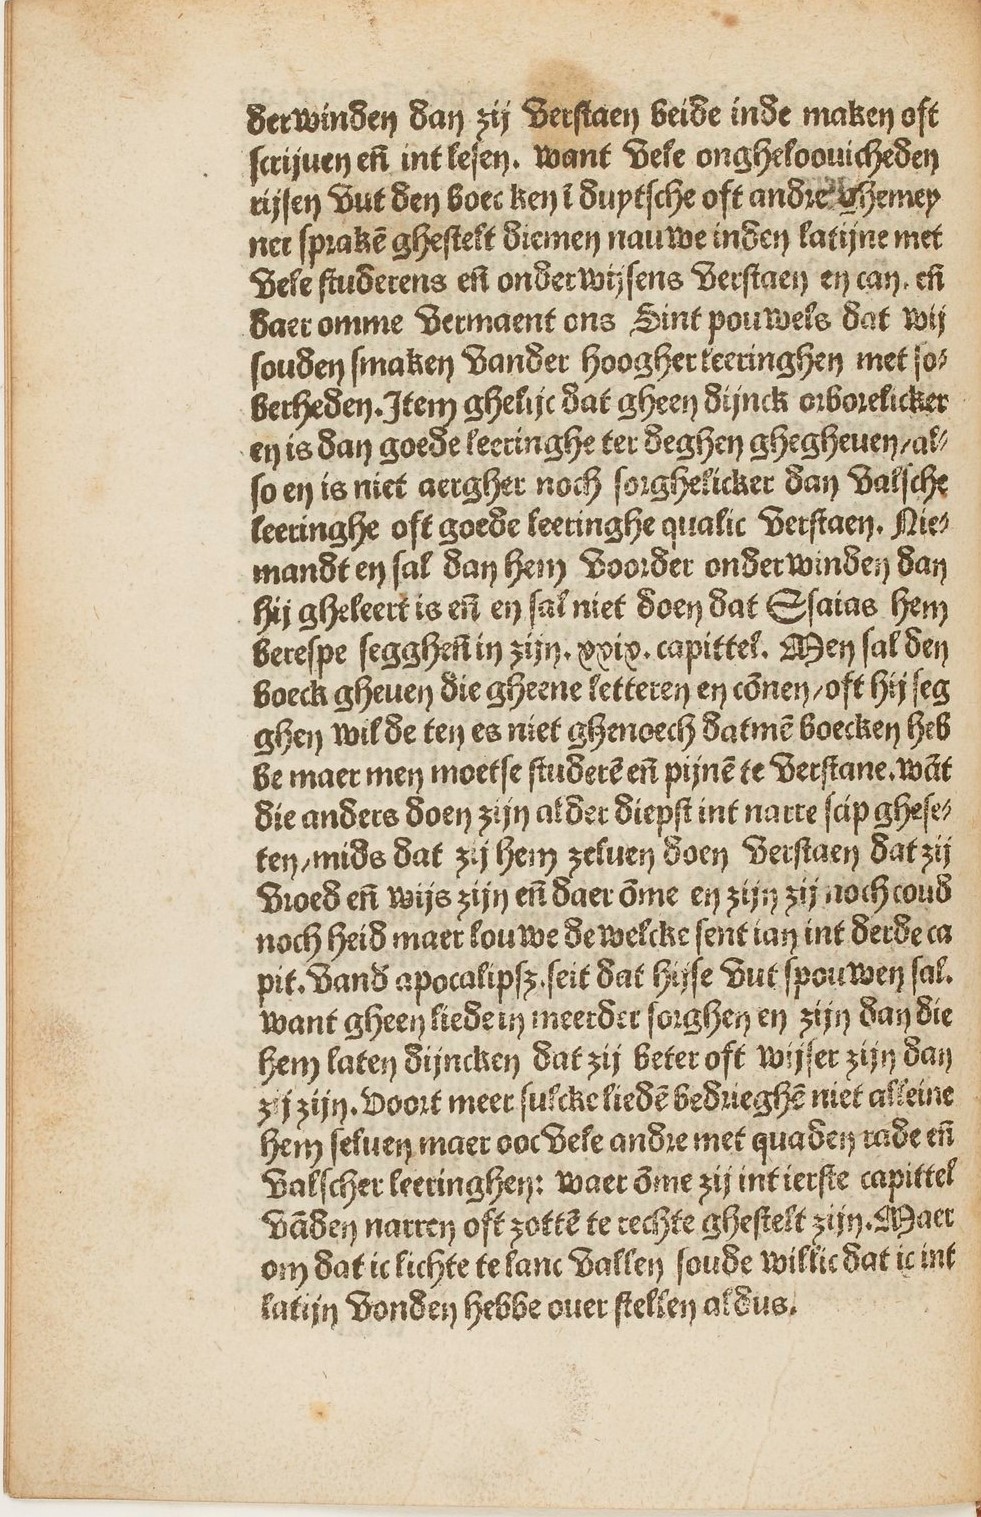 derwinden dan zij verstaen beide inde maken oft
scrijuen eñ int lesen. want vele ongheloouicheden
rijsen vut den boec ken ī duytsche oft andre ghemey
ner sprakē ghestelt diemen nauwe inden latijne met
vele studerens eñ onderwijsens verstaen en can. eñ
daer omme vermaent ons Sint pouwels dat wij
souden smaken vander hoogher leeringhen met so⸗
berheden. Item ghelijc dat gheen dijnck orborelicker
en is dan goede leeringhe ter deghen ghegheuen/al⸗
so en is niet aergher noch sorghelicker dan valsche
leeringhe oft goede leeringhe qualic verstaen. Nie⸗
mandt en sal dan hem voorder onderwinden dan
hij gheleert is eñ en sal niet doen dat Esaias hem
berespe seggheñ in zijn. xxix. capittel. Men sal den
boeck gheuen die gheene letteren en cōnen/oft hij seg
ghen wil de ten es niet ghenoech datmē boecken heb
be maer men moetse studerē eñ pijnē te verstane. wāt
die anders doen zijn alder diepst int narre scip ghese⸗
ten/mids dat zij hem zeluen doen verstaen dat zij
vroed eñ wijs zijn eñ daer ōme en zijn zij noch coud
noch heid maer louwe de welcke sent ian int derde ca
pit. vand apocalipsz. seit dat hijse vut spouwen sal.
want gheen liede in meerder sorghen en zijn dan die
hem laten dijncken dat zij beter oft wijser zijn dan
zij zijn. voort meer sulcke liedē bedrieghē niet alleine
hem seluen maer ooc vele andre met quaden rade eñ
valscher leeringhen: waer ōme zij int ierste capittel
vāden narren oft zottē te rechte ghestelt zijn. Maer
om dat ic lichte te lanc vallen soude willic dat ic int
latijn vonden hebbe ouer stellen aldus.